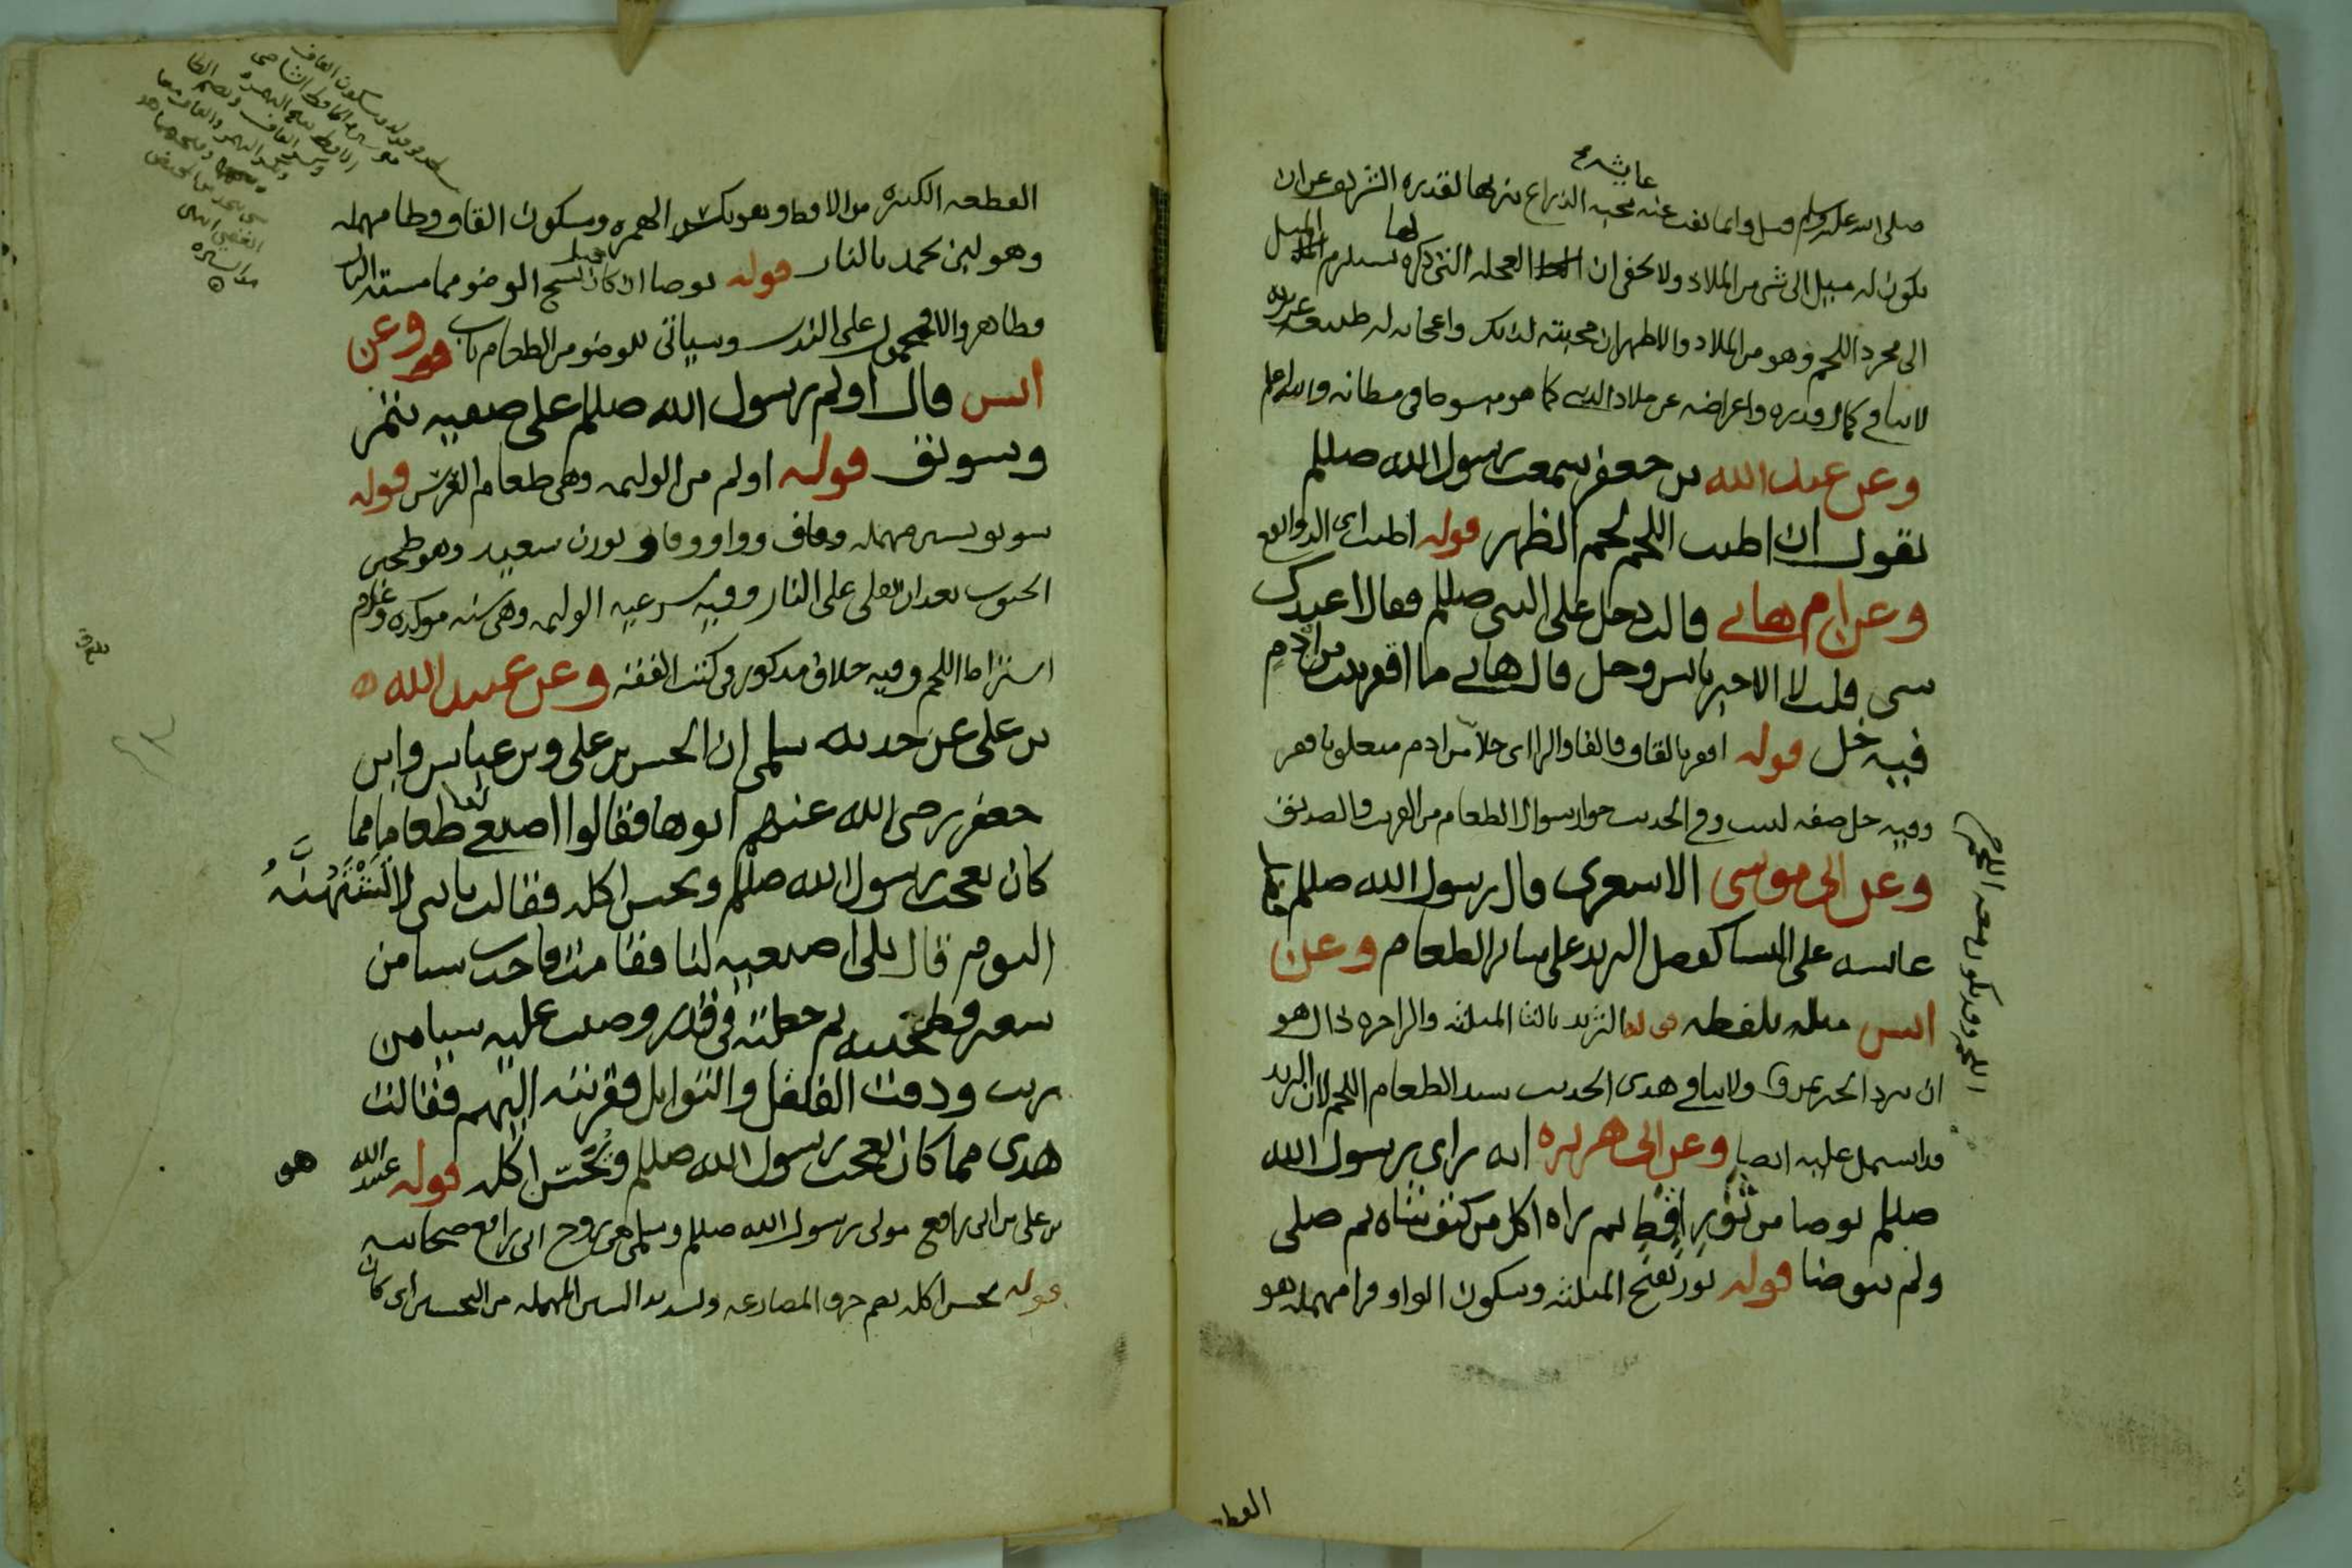 عايشه
صلى الله عليه وسلم وانما نفت عنه محبه الذراع تنزيها لقدره الشريف عن ان
يكون له ميل الى شى من الملاذ ولا يخفى ان العجله التى ذكره لها تستلزم الميل
الى مجرد اللحم وهو من الملاذ والاظهر ان محبته لذلك واعجابه له طبيعه غريزيه
لا ينافى كمال قدره واعراضه عن ملاذ الدنيا كما هو مبسوط فى مظانه والله اعلم
وعن عبد الله بن جعفر سمعت رسول الله صللم
يقول ان اطيب اللحم لحم الظهر قوله اطيب اى الذ وانفع
وعن ام هانى قالت دخل على النبى صللم فقال اعندك
شى قلت لا الا خبز يابس وخل قال هاتى ما اقفر بيت من ادم
فيه خل قوله اقفر بالقاف والفا والرا اى خلا من ادم متعلق باقفر
وفيه خل صفه لبيت وفى الحديث جواز سوال الطعام من القريب والصديق
وعن ابى موسى الاشعرى قال رسول الله صللم فضل
عايشه على النسا كفضل الثريد على سائر الطعام وعن
انس مثله بلفظه قوله الثريد بالثا المثلثه والرا اخره دال هو
ان يثرد الخبز بمرق ولا ينافى هذى الحديث سيد الطعام اللحم لان الثريد
قد اشتمل عليه ايضا وعن ابى هريره انه راى رسول الله
صللم توضا من ثور اقط ثم راه اكل من كتف شاه ثم صلى
ولم يتوضا قوله ثور بفتح المثلثه وسكون الواو فرا مهمله هو
اللحم وقد يكون معه اللحم
القطعه
القطعه الكبيره من الاقط وهو بكسر الهمزه وسكون القاف وطا مهمله
وهو لبن يجمد بالنار قوله توضا ان كان قبل نسخ الوضو مما مسته النار
فظاهر والا فمحمول على الندب وسياتى للوضو من الطعام باب وعن
انس قال اولم رسول الله صللم على صفيه بتمر
وسويق قوله اولم من الوليمه وهى طعام العرس قوله
سويق بسين مهمله وقاف وواو وقاف بوزن سعيد وهو طحين
الحبوب بعد ان تقلى على النار وفيه شرعيه الوليمه وهى سنه موكده وعدم
اشتراط اللحم وفيه خلاف مذكور فى كتب الفقه وعن عبيد الله
بن على عن جدته سلمى ان الحسن بن على وبن عباس وابن
جعفر رضى الله عنهم اتوها فقالوا اصنعى لنا طعاما مما
كان يعجب رسول الله صللم ويحسن اكله فقالت يا بنى لا تشتهينه
اليوم قال بلى اصنعيه لنا فقامت فاخذت شيا من
شعير وطحنته ثم جعلته فى قدر وصبت عليه شيا من
زيت ودقت الفلفل والتوابل فقربته اليهم فقالت
هذى مما كان يعجب رسول الله صللم ويحسن اكله قوله عبيد الله هو
بن على بن ابى رافع مولى رسول الله صللم وسلمى هى زوج ابى رافع صحابيه
قوله يحسن اكله بضم حرف المضارعه وتشديد السين المهمله من التحسين اى كان